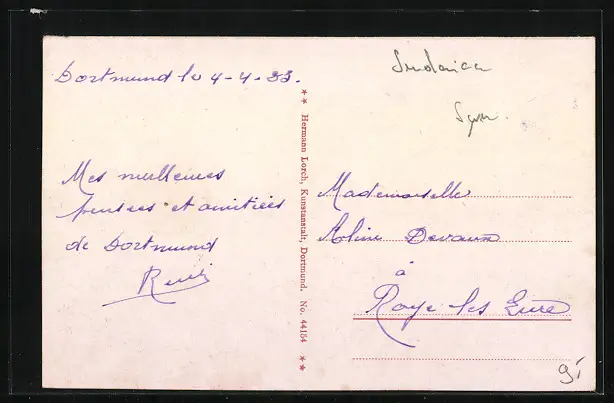 Dortmund le 4-4-33.
Mes meilleures
pensées et amitiés
de Dortmund
René
★★ Hermann Lorch, Kunstanstalt, Dortmund. No. 44154 ★★
Mademoiselle
Aline Devaux
à
Roye les Lure